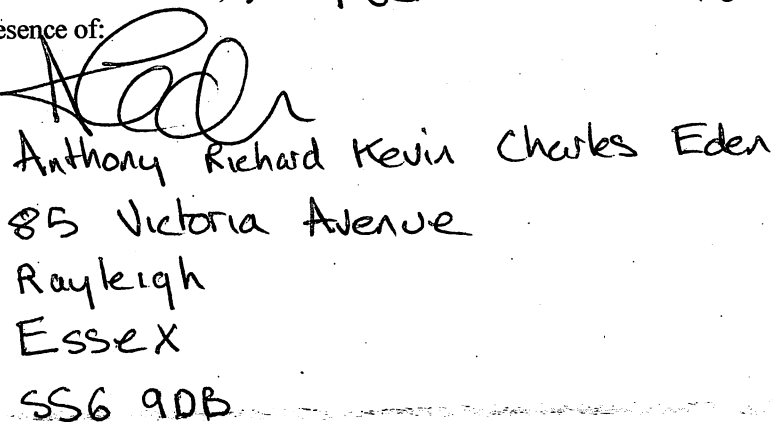 esence of:
Anthony Richard Kevin Charles Eden
85 Victoria Avenue
Rayleigh
Essex
SS6 9DB